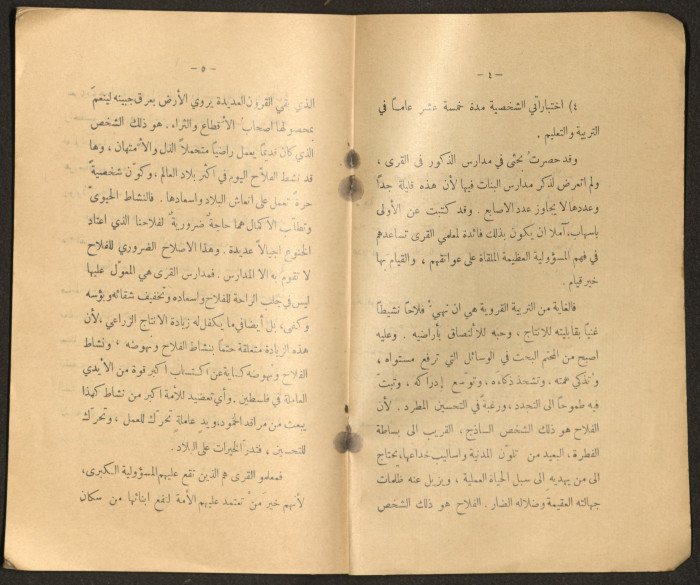 - ٤ -
٤) اختباراتي الشخصية مدة خمسة عشر عاماً في
التربية والتعليم .
وقد حصرتُ بحثي في مدارس الذكور في القرى ،
ولم اتعرض لذكر مدارس البنات فيها لأن هذه قليلة جداً
وعددها لا يجاوز عدد الاصابع . وقد كتبت عن الأولى
باسهاب، آملا ان يكون بذلك فائدة لمعلمي القرى تساعدهم
في فهم المسؤولية العظيمة الملقاة على عواتقهم ، والقيام بها
خير قيام .
فالغاية من التربية القروية هي ان نهيء فلاحاً نشيطاً
غنياً بقابليته للانتاج ، وحبه للالتصاق بأراضيه . وعليه
اصبح من المحتم البحث في الوسائل التي ترفع مستواه ،
وتذكي همته ، وتشحذ ذكاءه ، وتوسع إدراكه ، وتبث
فيه طموحاً الى التجدد ، ورغبة في التحسين المطرد . لأن
الفلاح هو ذلك الشخص الساذج ، القريب الى بساطة
الفطرة ، البعيد من تلوّن المدنية واساليب خداعها، يحتاج
الى من يهديه الى سبل الحياة العملية ، ويزيل عنه ظلمات
جهالته العقيمة وضلاله الضار . الفلاح هو ذلك الشخص
- ٥ -
الذي بقي القرون العديدة يروي الأرض بعرق جبينه لينعم
بمحصولها اصحاب الأقطاع والثراء . هو ذلك الشخص
الذي كان قديماً يعمل راضياً متحملاً الذل والأمتهان ، وها
قد نشط الفلاح اليوم في اكثر بلاد العالم ، وكوّن شخصيةً
حرةً تعمل على انعاش البلاد واسعادها . فالنشاط الحيويّ
وتطلّب الأكمال هما حاجةٌ ضروريةٌ لفلاحنا الذي اعتاد
الخنوع اجيالاً عديدة . وهذا الاصلاح الضروري للفلاح
لا تقوم به الا المدارس . فمدارس القرى هي المعوّل عليها
ليس في جلب الراحة للفلاح واسعاده وتخفيف شقائه وبؤسه
وكفى، بل أيضاً في ما يكفل له زيادة الانتاج الزراعي ،لأن
هذه الزيادة متعلقة حتماً بنشاط الفلاح ونهوضه ، ونشاط
الفلاح ونهوضه كناية عن اكتساب اكبر قوة من الأيدي
العاملة في فلسطين . وأي تعضيد للأمة اكبر من نشاط كهذا
يبعث من مراقد الخمود، ويدٍ عاملةٍ تحرّك للعمل ، وتحرّك
للتحسين ، فتدرّ الخيرات على البلاد .
فمعلمو القرى هم الذين تقع عليهم المسؤولية الكبرى،
لأنهم خير مَنْ تعتمد عليهم الأمة لنفع ابنائها من سكان